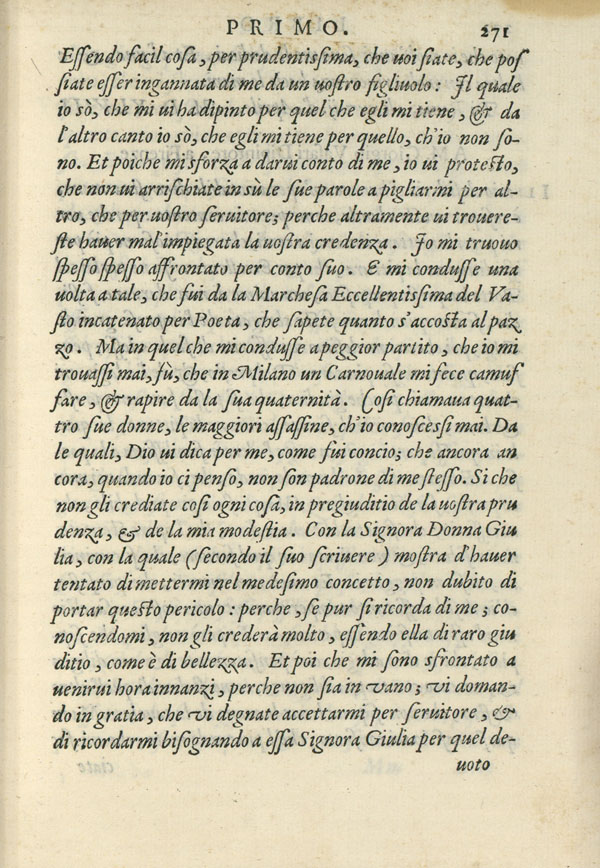 PRIMO. 271
Eſſendo facil coſa, per prudentiſſima, che uoi ſiate, che poſ
ſiate eſſer ingannata di me da un uoſtro figliuolo: Il quale
io sò, che mi ui ha dipinto per quel che egli mi tiene, & da
l'altro canto io sò, che egli mi tiene per quello, ch'io non ſo-
no. Et poiche mi sforza a darui conto di me, io ui proteſto,
che non ui arriſchiate in sù le ſue parole a pigliarmi per al-
tro, che per uoſtro ſeruitore; perche altramente ui trouere-
ſte hauer mal'impiegata la uoſtra credenza. Io mi truouo
ſpeſſo ſpeſſo affrontato per conto ſuo. E mi conduſſe una
uolta a tale, che fui da la Marcheſa Eccellentiſſima del Va-
ſto incatenato per Poeta, che ſapete quanto s'accoſta al paz
zo. Ma in quel che mi conduſſe a peggior partito, che io mi
trouaſſi mai, fù, che in Milano un Carnouale mi fece camuf
fare, & rapire da la ſua quaternità. Coſi chiamaua quat-
tro ſue donne, le maggiori aſſaſſine, ch'io conoſceſſi mai. Da
le quali, Dio ui dica per me, come fui concio; che ancora an
cora, quando io ci penſo, non ſon padrone di me ſteſſo. Si che
non gli crediate coſi ogni coſa, in pregiuditio de la uoſtra pru
denza, & de la mia modeſtia. Con la Signora Donna Giu
lia, con la quale (ſecondo il ſuo ſcriuere) moſtra d'hauer
tentato di mettermi nel medeſimo concetto, non dubito di
portar queſto pericolo: perche, ſe pur ſi ricorda di me; co-
noſcendomi, non gli crederà molto, eſſendo ella di raro giu
ditio, come è di bellezza. Et poi che mi ſono sfrontato a
uenirui hora innanzi, perche non ſia in vano; vi doman-
do in gratia, che vi degnate accettarmi per ſeruitore, &
di ricordarmi biſognando a eſſa Signora Giulia per quel de-
uoto